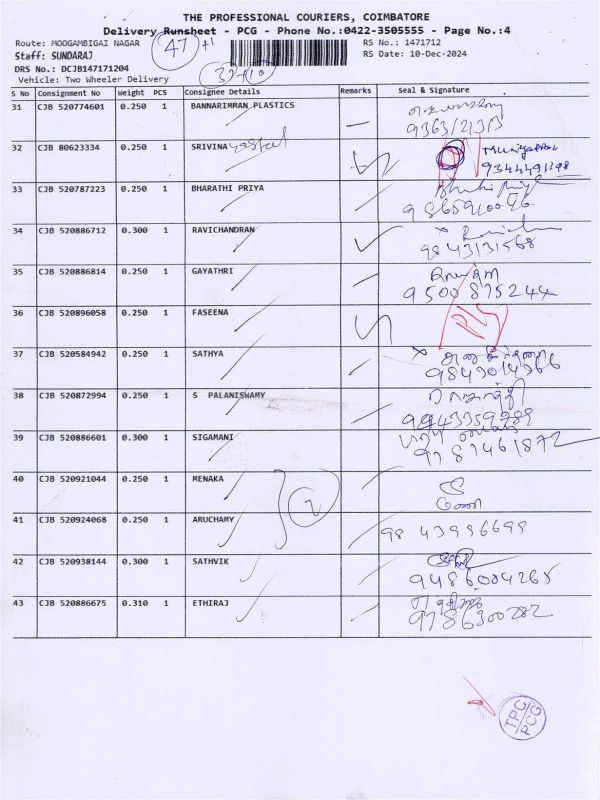 THE PROFESSIONAL COURIERS, COIMBATORE
Delivery Runsheet - PCG - Phone No.:0422-3505555 - Page No.:4
Route: MOOGAMBIGAI NAGAR 47 +1 RS No.: 1471712
Staff: SUNDARAJ RS Date: 10-Dec-2024
DRS No.: DCJB147171204
Vehicle: Two Wheeler Delivery
S No Consignment No Weight PCS Consignee Details Remarks Seal & Signature
31 CJB 520774601 0.250 1 BANNARIMMAN PLASTICS
32 CJB 80623334 0.250 1 SRIVINA
9344491198
33 CJB 520787223 0.250 1 BHARATHI PRIYA
34 CJB 520886712 0.300 1 RAVICHANDRAN
9843131568
35 CJB 520886814 0.250 1 GAYATHRI
9500875244
36 CJB 520896058 0.250 1 FASEENA
37 CJB 520584942 0.250 1 SATHYA
9843014366
38 CJB 520872994 0.250 1 S PALANISWAMY
39 CJB 520886601 0.300 1 SIGAMANI
9787461872
40 CJB 520921044 0.250 1 MENAKA
2
41 CJB 520924068 0.250 1 ARUCHAMY 9843996699
42 CJB 520938144 0.300 1 SATHVIK
9486004268
43 CJB 520886675 0.310 1 ETHIRAJ
9786300282
TPC
PCG